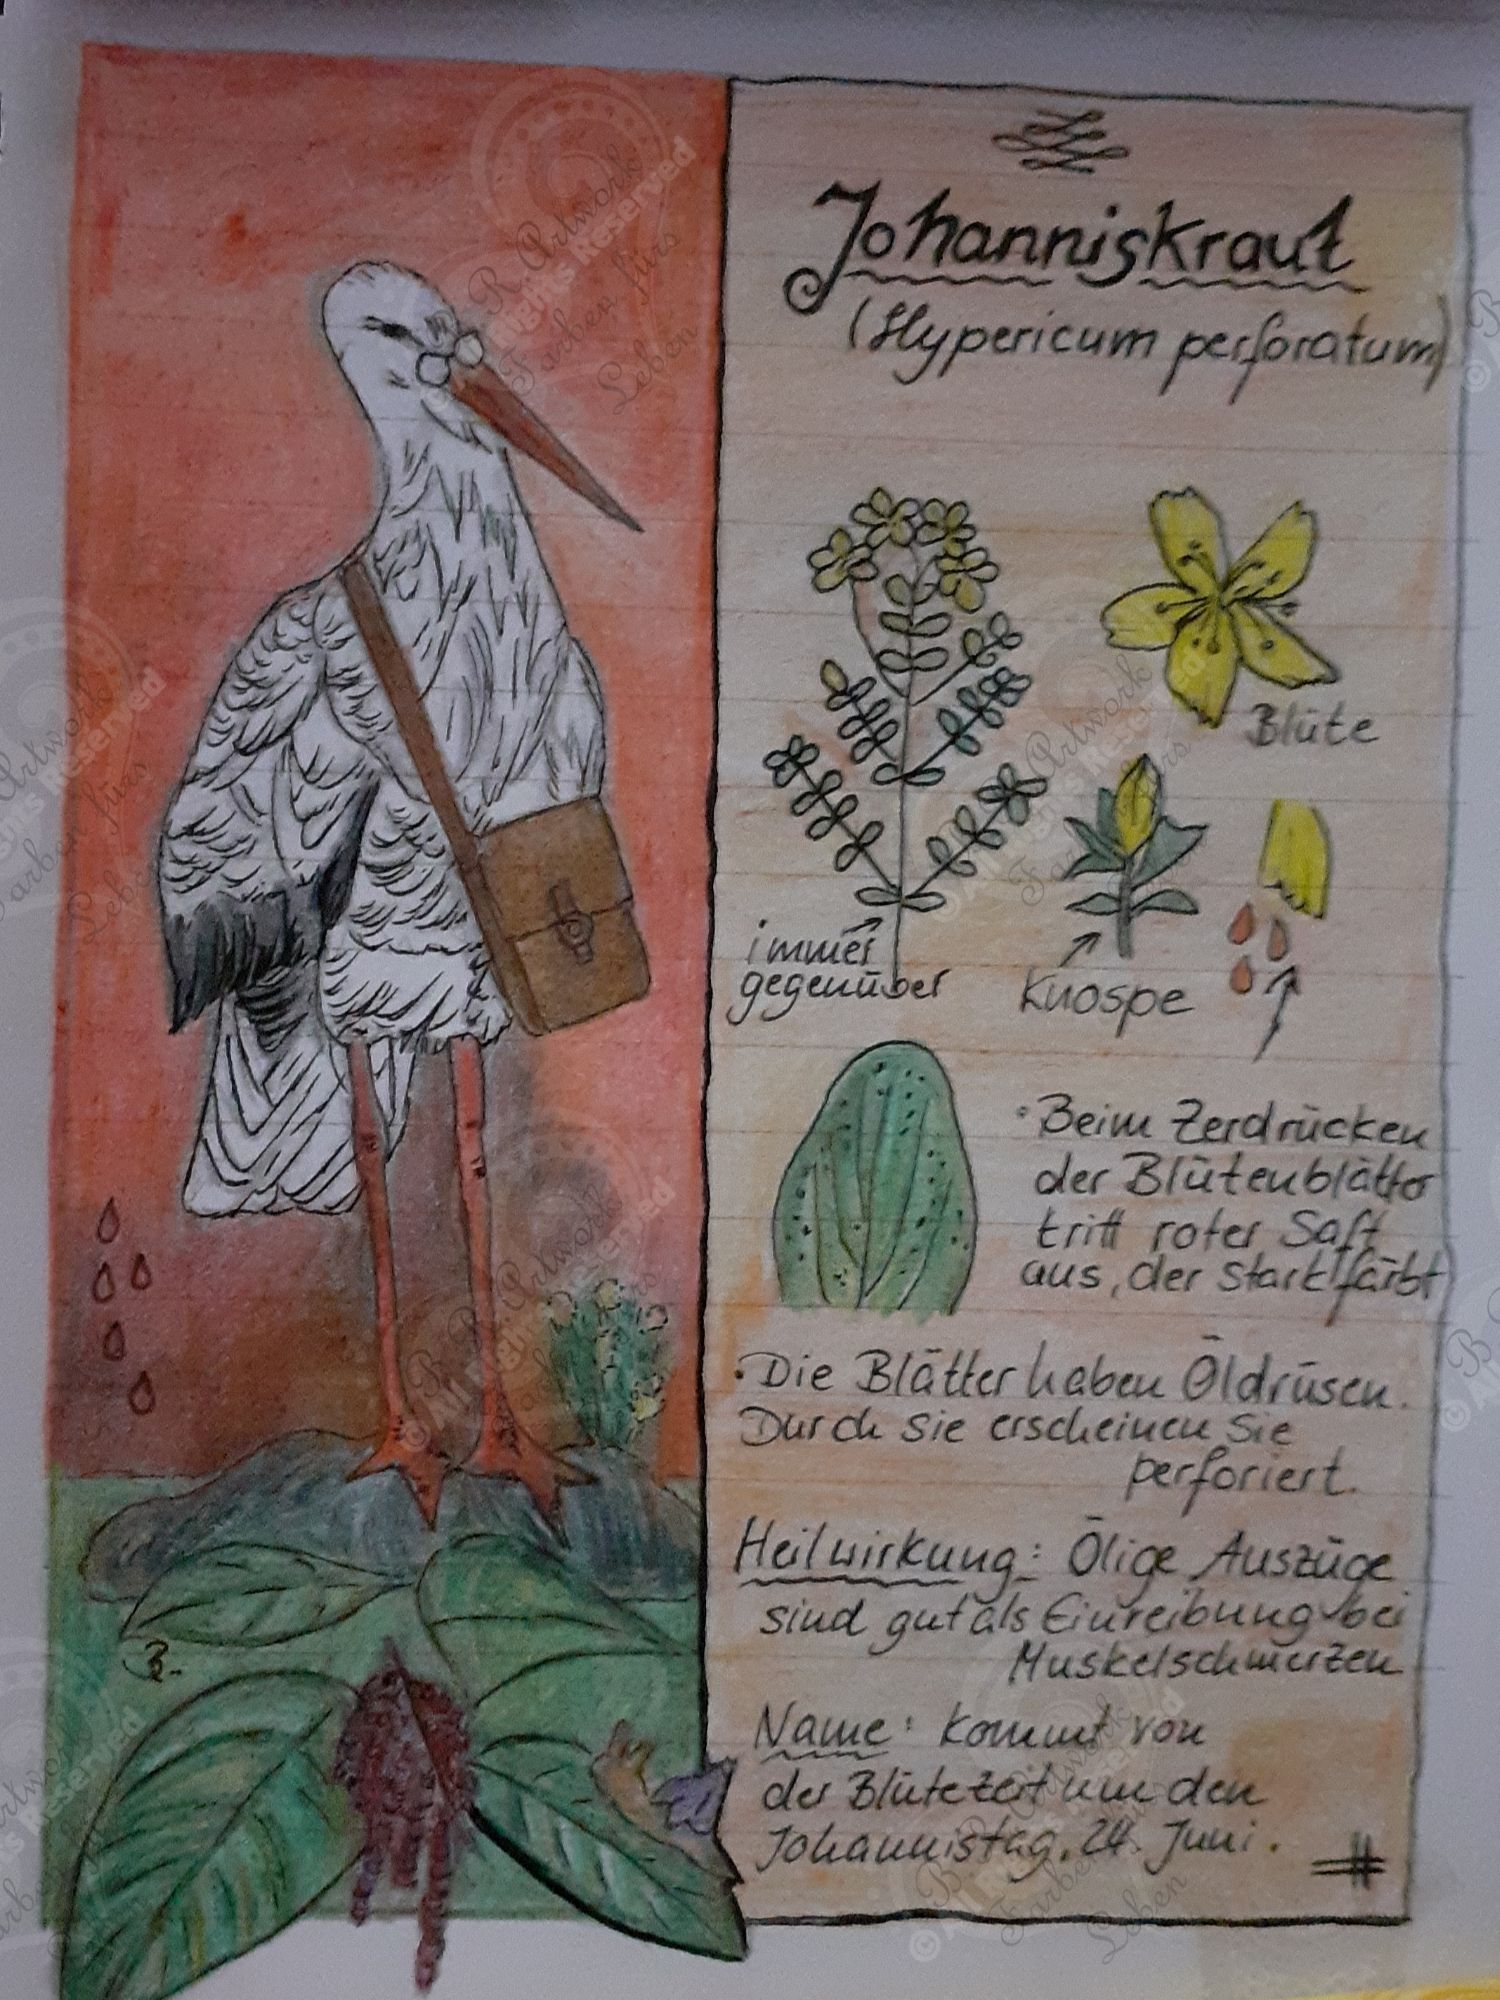 Johanniskraut
(Hypericum perforatum)
Blüte
immer
gegenüber
Knospe
• Beim Zerdrücken
der Blütenblätter
tritt roter Saft
aus, der stark färbt
• Die Blätter haben Öldrüsen.
Durch sie erscheinen sie
perforiert.
Heilwirkung: Ölige Auszüge
sind gut als Einreibung bei
Muskelschmerzen
Name: kommt von
der Blütezeit um den
Johannistag. 24. Juni.
B. R. Artwork
Farben fürs
Leben
© All Rights Reserved